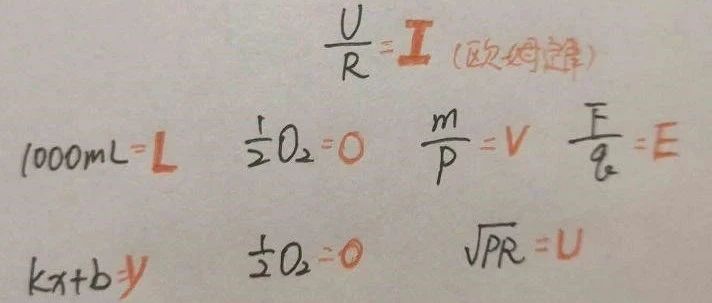 U/R = I (欧姆定律)
1000mL = L ½O₂ = O m/ρ = V F/q = E
kx+b = y ½O₂ = O √PR = U